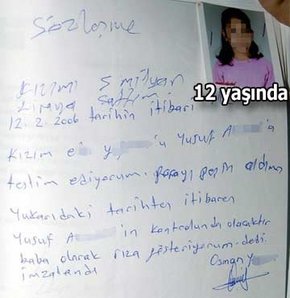 Sözleşme
12 yaşında
Kızımı 5 milyar
liraya sattım.
12.2.2006 tarihin itibari
Kızım e Y 'ı Yusuf A 'a
teslim ediyorum. parayı peşin aldım
Yukarıdaki tarihten itibaren
Yusuf A in kontrolunda olacaktır
baba olarak rıza gösteriyorum. dedi.
imzalandı Osman Y